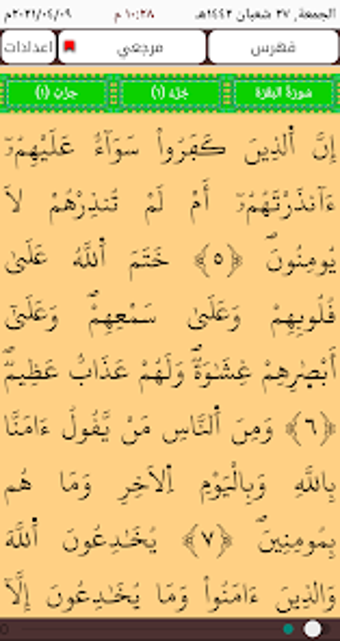 الجمعة, ٢٧ شعبان ١٤٤٢هـ ١٠:٢٨ م ٢٠٢١/٠٤/٠٩م
فهرس مرجعي اعدادات
سورة البقرة جزء (١) حزب (١)
إِنَّ اَ۬لذِينَ كَفَرُواْ سَوَآءٌ عَلَيْهِمُۥٓ
ءَآنذَرْتَهُمُۥٓ أَمْ لَمْ تُنذِرْهُمْ لَا
يُومِنُونَۖ ﴿٥﴾ خَتَمَ اَ۬للَّهُ عَلَىٰ
قُلُوبِهِمْ وَعَلَىٰ سَمْعِهِمْۖ وَعَلَىٰٓ
أَبْصٰ۪رِهِمْ غِشَٰوَةٌۖ وَلَهُمْ عَذَابٌ عَظِيمٌۖ
﴿٦﴾ وَمِنَ اَ۬لنَّاسِ مَنْ يَّقُولُ ءَامَنَّا
بِاللَّهِ وَبِالْيَوْمِ اِ۬لَاخِرِ وَمَا هُم
بِمُومِنِينَۖ ﴿٧﴾ يُخَٰدِعُونَ اَ۬للَّهَ
وَالذِينَ ءَامَنُواْ وَمَا يُخَٰدِعُونَ إِلَّآ